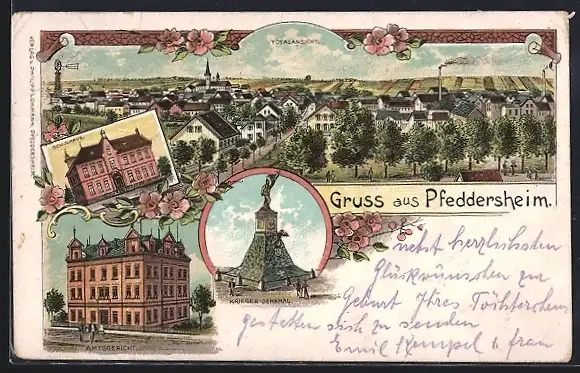 TOTALANSICHT.
SCHULHAUS.
Gruss aus Pfeddersheim.
KRIEGER-DENKMAL
AMTSGERICHT.
nebst herzlichsten
Glückwünschen zur
Geburt Ihres Töchterchens
gestatten sich zu senden
Emil Hempel u frau